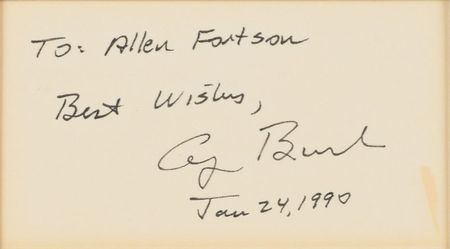 To: Allen Fortson
Best Wishes,
Jan 24, 1990